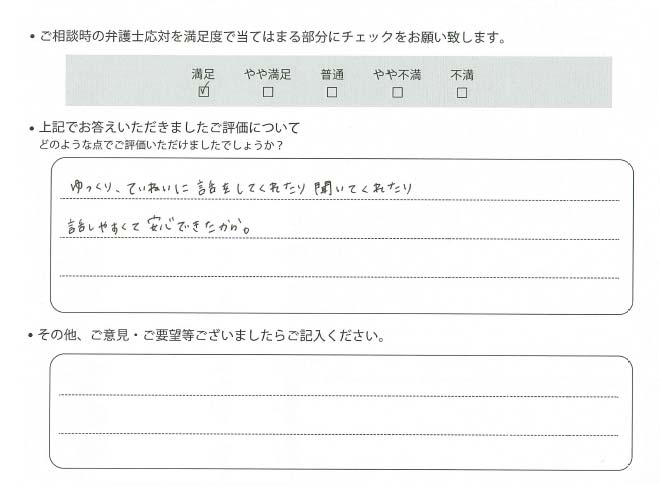 • ご相談時の弁護士応対を満足度で当てはまる部分にチェックをお願い致します。
満足 やや満足 普通 やや不満 不満
☑ □ □ □ □
• 上記でお答えいただきましたご評価について
どのような点でご評価いただけましたでしょうか？
ゆっくり、ていねいに話をしてくれたり聞いてくれたり
話しやすくて安心できたから。
• その他、ご意見・ご要望等ございましたらご記入ください。